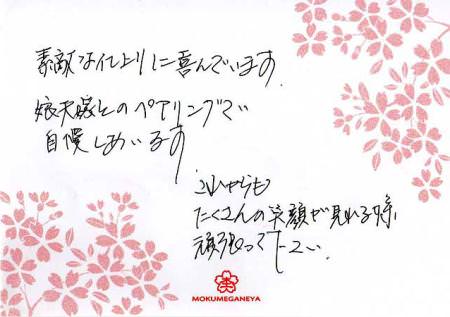 素敵な仕上りに喜んでいます
娘夫婦とのペアリングで
自慢しています
これからも
たくさんの笑顔が見れる様
頑張って下さい。
MOKUMEGANEYA